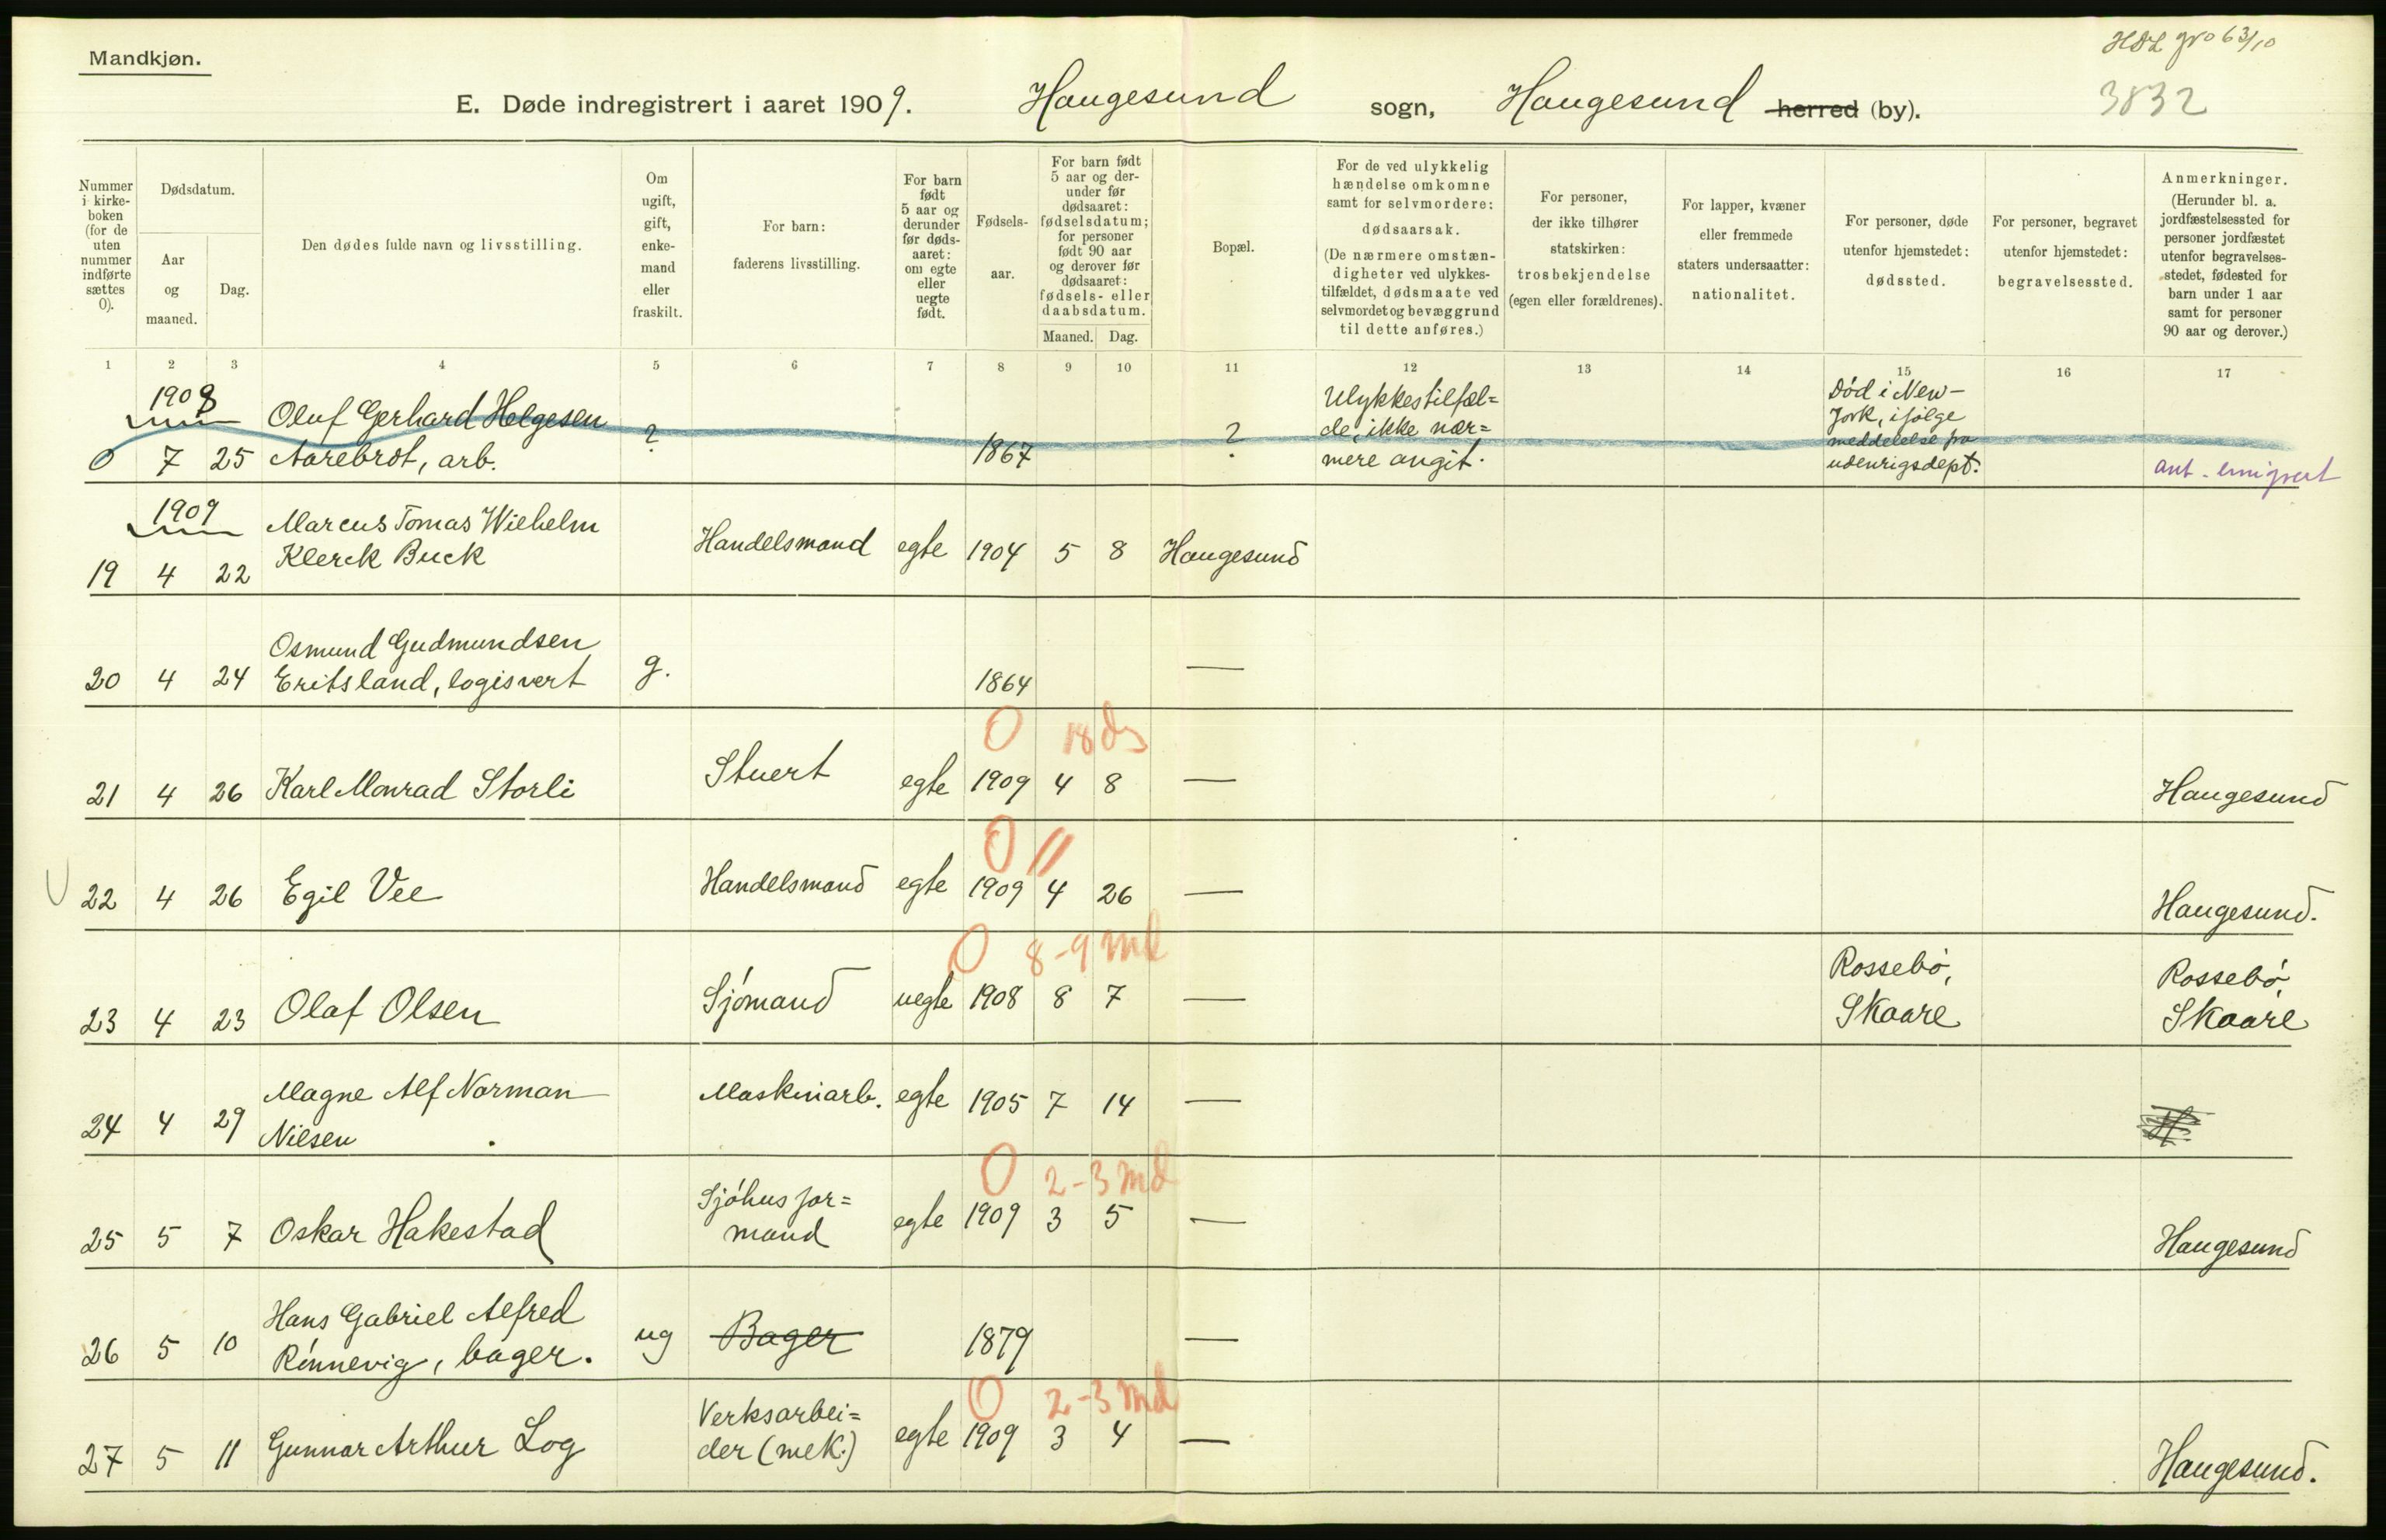 Mandkjøn.
3832
E. Døde indregistrert i aaret 1909. Haugesund sogn, Haugesund herred (by).
Nummer i kirke-boken (for de uten nummer indførte sættes 0).
Dødsdatum.
Aar og maaned.
Dag.
Den dødes fulde navn og livsstilling.
Om ugift, gift, enke-mand eller fraskilt.
For barn: faderens livsstilling.
For barn født 5 aar og derunder før døds-aaret: om egte eller uegte født.
Fødsels-aar.
For barn født 5 aar og der-under før dødsaaret: fødselsdatum; for personer født 90 aar og derover før dødsaaret: fødsels- eller daabsdatum.
Maaned. Dag.
Bopæl.
For de ved ulykkelig hændelse omkomne samt for selvmordere: dødsaarsak. (De nærmere omstæn-digheter ved ulykkes-tilfældet, dødsmaate ved selvmordet og bevæggrund til dette anføres.)
For personer, der ikke tilhører statskirken: trosbekjendelse (egen eller forældrenes).
For lapper, kvæner eller fremmede staters undersaatter: nationalitet.
For personer, døde utenfor hjemstedet: dødssted.
For personer, begravet utenfor hjemstedet: begravelsessted.
Anmerkninger. (Herunder bl. a. jordfæstelsessted for personer jordfæstet utenfor begravelses-stedet, fødested for barn under 1 aar samt for personer 90 aar og derover.)
1 2 3 4 5 6 7 8 9 10 11 12 13 14 15 16 17
1908
0 7 25 Oluf Gerhard Helgesen Aarebrot, arb. ? 1867 ? Ulykkestilfæl=de, ikke nær=mere angit. Død i New-York, ifølge meddelelse fra udenrigsdept. ant. emigrert
1909
19 4 22 Marcus Tomas Wilhelm Klerck Buck Handelsmand egte 1904 5 8 Haugesund
20 4 24 Osmund Gudmundsen Eritsland, logisvert g. 1864 —
0 18 ds
21 4 26 Karl Monrad Storli Stuert egte 1909 4 8 — Haugesund
0 11
22 4 26 Egil Vee Handelsmand egte 1909 4 26 — Haugesund.
0 8-9 md
23 4 23 Olaf Olsen Sjömand uegte 1908 8 7 — Rossebö, Skaare Rossebö, Skaare
24 4 29 Magne Alf Norman Nilsen Maskinarb. egte 1905 7 14 —
0 2-3 md
25 5 7 Oskar Hakestad Sjöhusfor=mand egte 1909 3 5 — Haugesund
26 5 10 Hans Gabriel Alfred Rönnevig, bager. ug Bager 1879 —
0 2-3 md
27 5 11 Gunnar Arthur Log Verksarbei=der (mek.) egte 1909 3 4 — Haugesund.